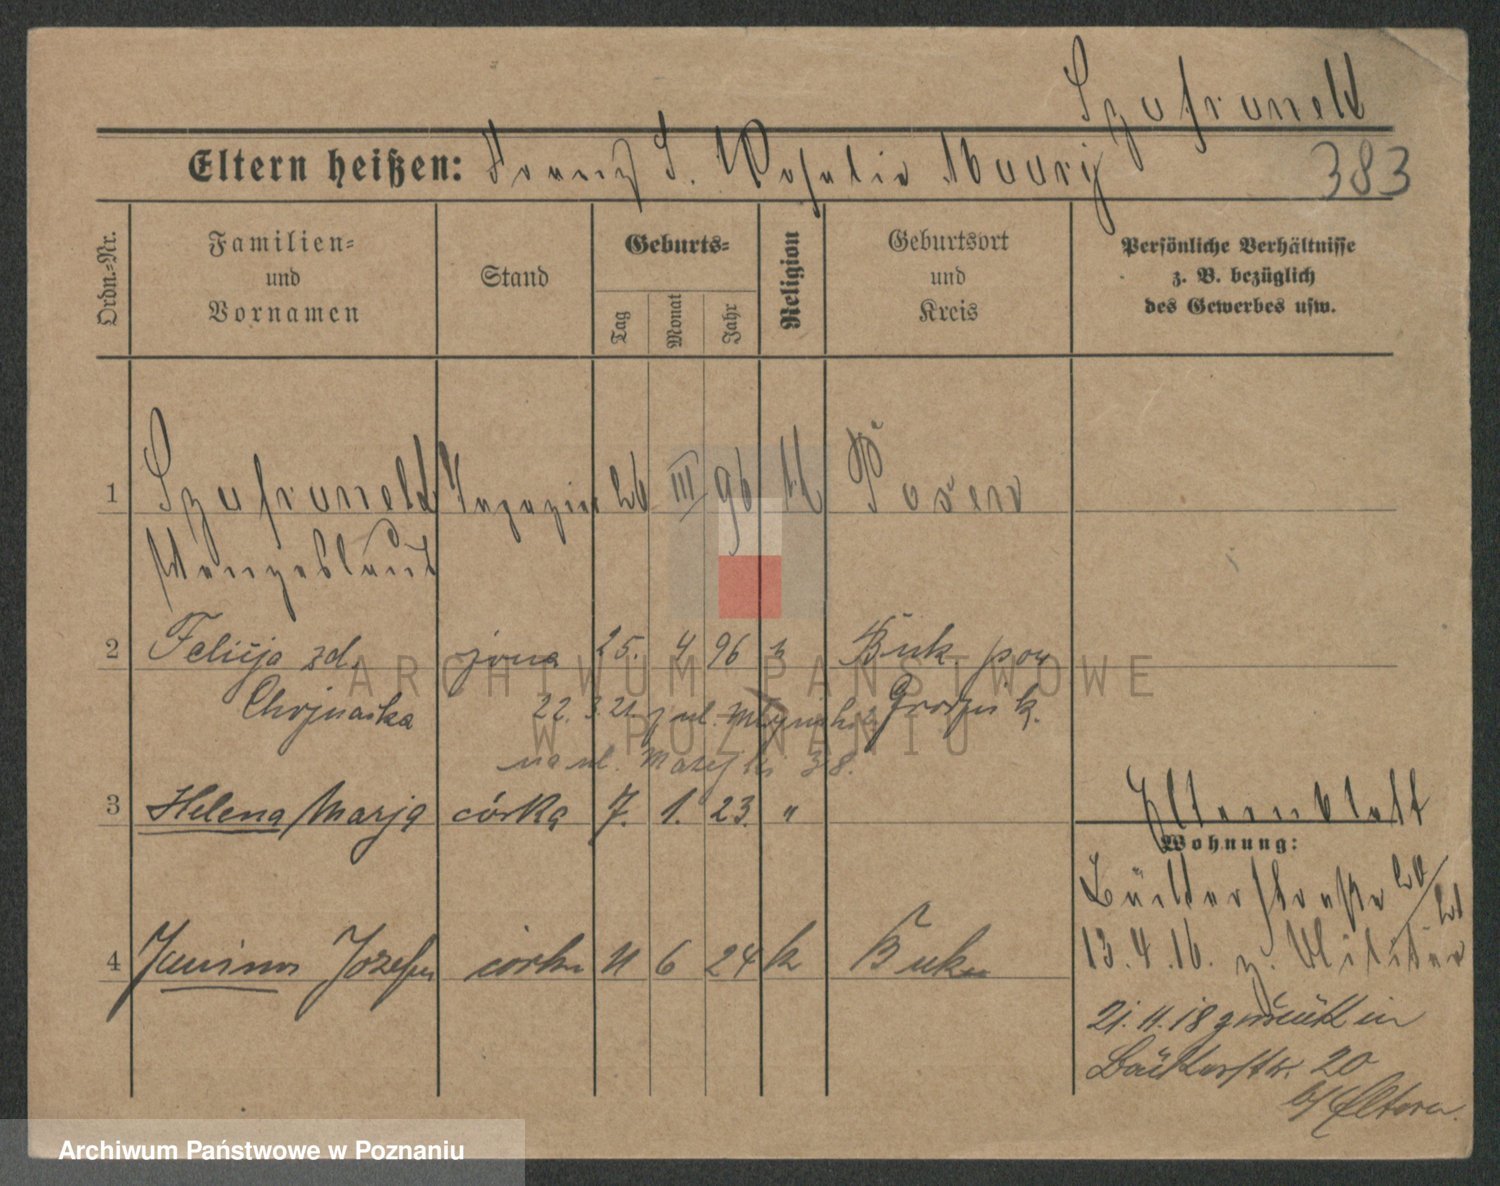 Szafranek
Eltern heißen: Franz S. Rosalie
383
Ordn.-Nr.
Familien-
und
Vornamen
Stand
Geburts-
Tag
Monat
Jahr
Religion
Geburtsort
und
Kreis
Persönliche Verhältnisse
z. B. bezüglich
des Gewerbes usw.
1 Szafranek 26 III 96 k Posen
2 Felicja zd. żona 25. 4 96 k Buk pow
Chojnacka 22. 3. 21 z ul. Młyńskiej Grodzisk.
na ul. 38.
3 Helena Marja córka 7. 1. 23. "
Elternblatt
Wohnung:
Bäckerstraße 20/21
4 Janina Józefa córka 11 6 24 k Buku
13.4.16. z. Militär
21.11.18 zurück in
Bäckerstr. 20
b/ Eltern.
ARCHIWUM PAŃSTWOWE
W POZNANIU
Archiwum Państwowe w Poznaniu